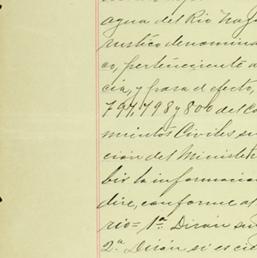 agua del Rio
rustico denomina
co, perteneciente a
cia, y para el efecto,
797, 798 y 800 del Co
mientos Civiles se
ción del Ministe
bir la informacion
dire, conforme al
rio = 1ª Dirán
2ª Dirán si es cie